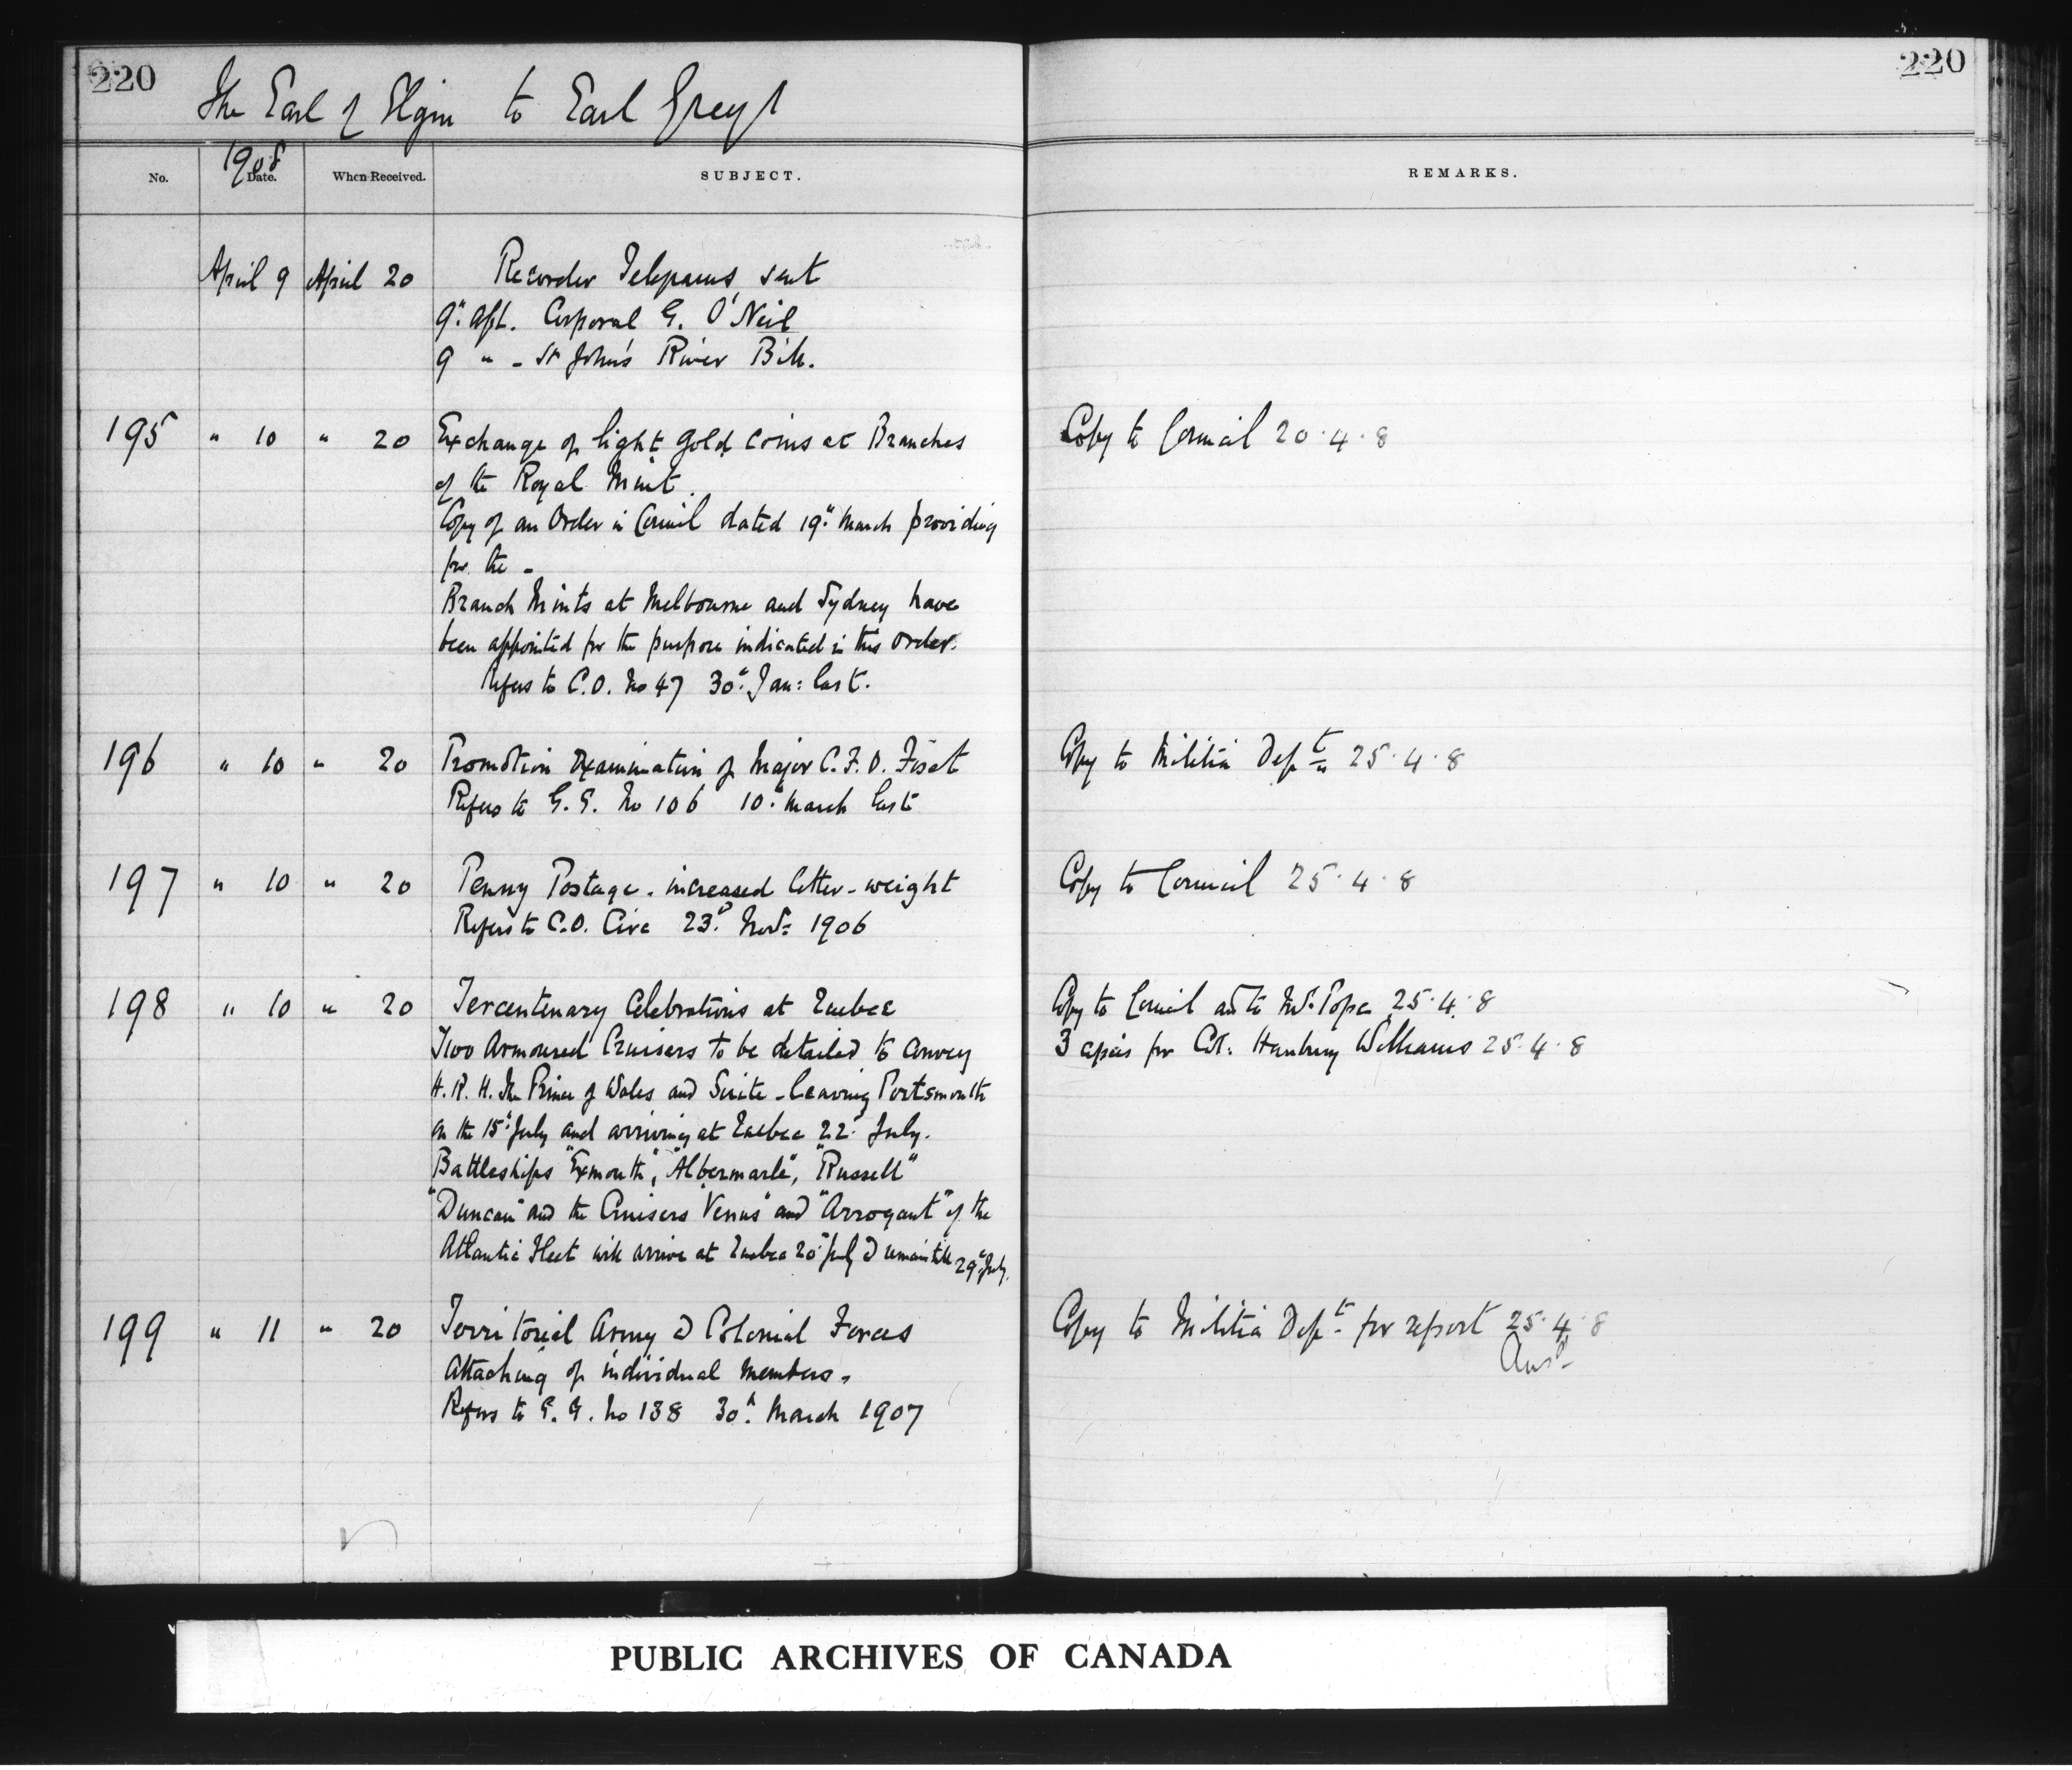 220
220
The Earl of Elgin to Earl Grey
1908
No. Date. When Received. SUBJECT. REMARKS.
April 9 April 20 Recorder Telegrams, sent
9th Apl. Corporal G. O'Neil
9 " - St John's River Bill.
195 " 10 " 20 Exchange of light gold coins at Branches Copy to Council 20.4.8
of the Royal Mint.
Copy of an Order in Council dated 19th March providing
for the -
Branch Mints at Melbourne and Sydney have
been appointed for the purpose indicated in this order.
Refers to C.O. No 47 30th Jan: last.
196 " 10 " 20 Promotion Examination of Major C.F.O. Fiset Copy to Militia Dept 25.4.8
Refers to G.G. No 106 10th March last
197 " 10 " 20 Penny Postage - increased letter-weight Copy to Council 25.4.8
Refers to C.O. Circ 23d Nov: 1906
198 " 10 " 20 Tercentenary Celebrations at Quebec Copy to Council and to Mr. Pope 25.4.8
Two Armoured Cruisers to be detailed to convey 3 copies for Col: Hanbury Williams 25.4.8
H.R.H. The Prince of Wales and Suite - leaving Portsmouth
on the 15th July and arriving at Quebec 22d July.
Battleships "Exmouth", "Albermarle", "Russell"
"Duncan" and the Cruisers "Venus" and "Arrogant" of the
Atlantic Fleet will arrive at Quebec 20th July & remain till 29th July.
199 " 11 " 20 Territorial Army & Colonial Forces Copy to Militia Dept for report 25.4.8
Ansd
Attaching of individual members.
Refers to G.G. No 138 30th March 1907
PUBLIC ARCHIVES OF CANADA